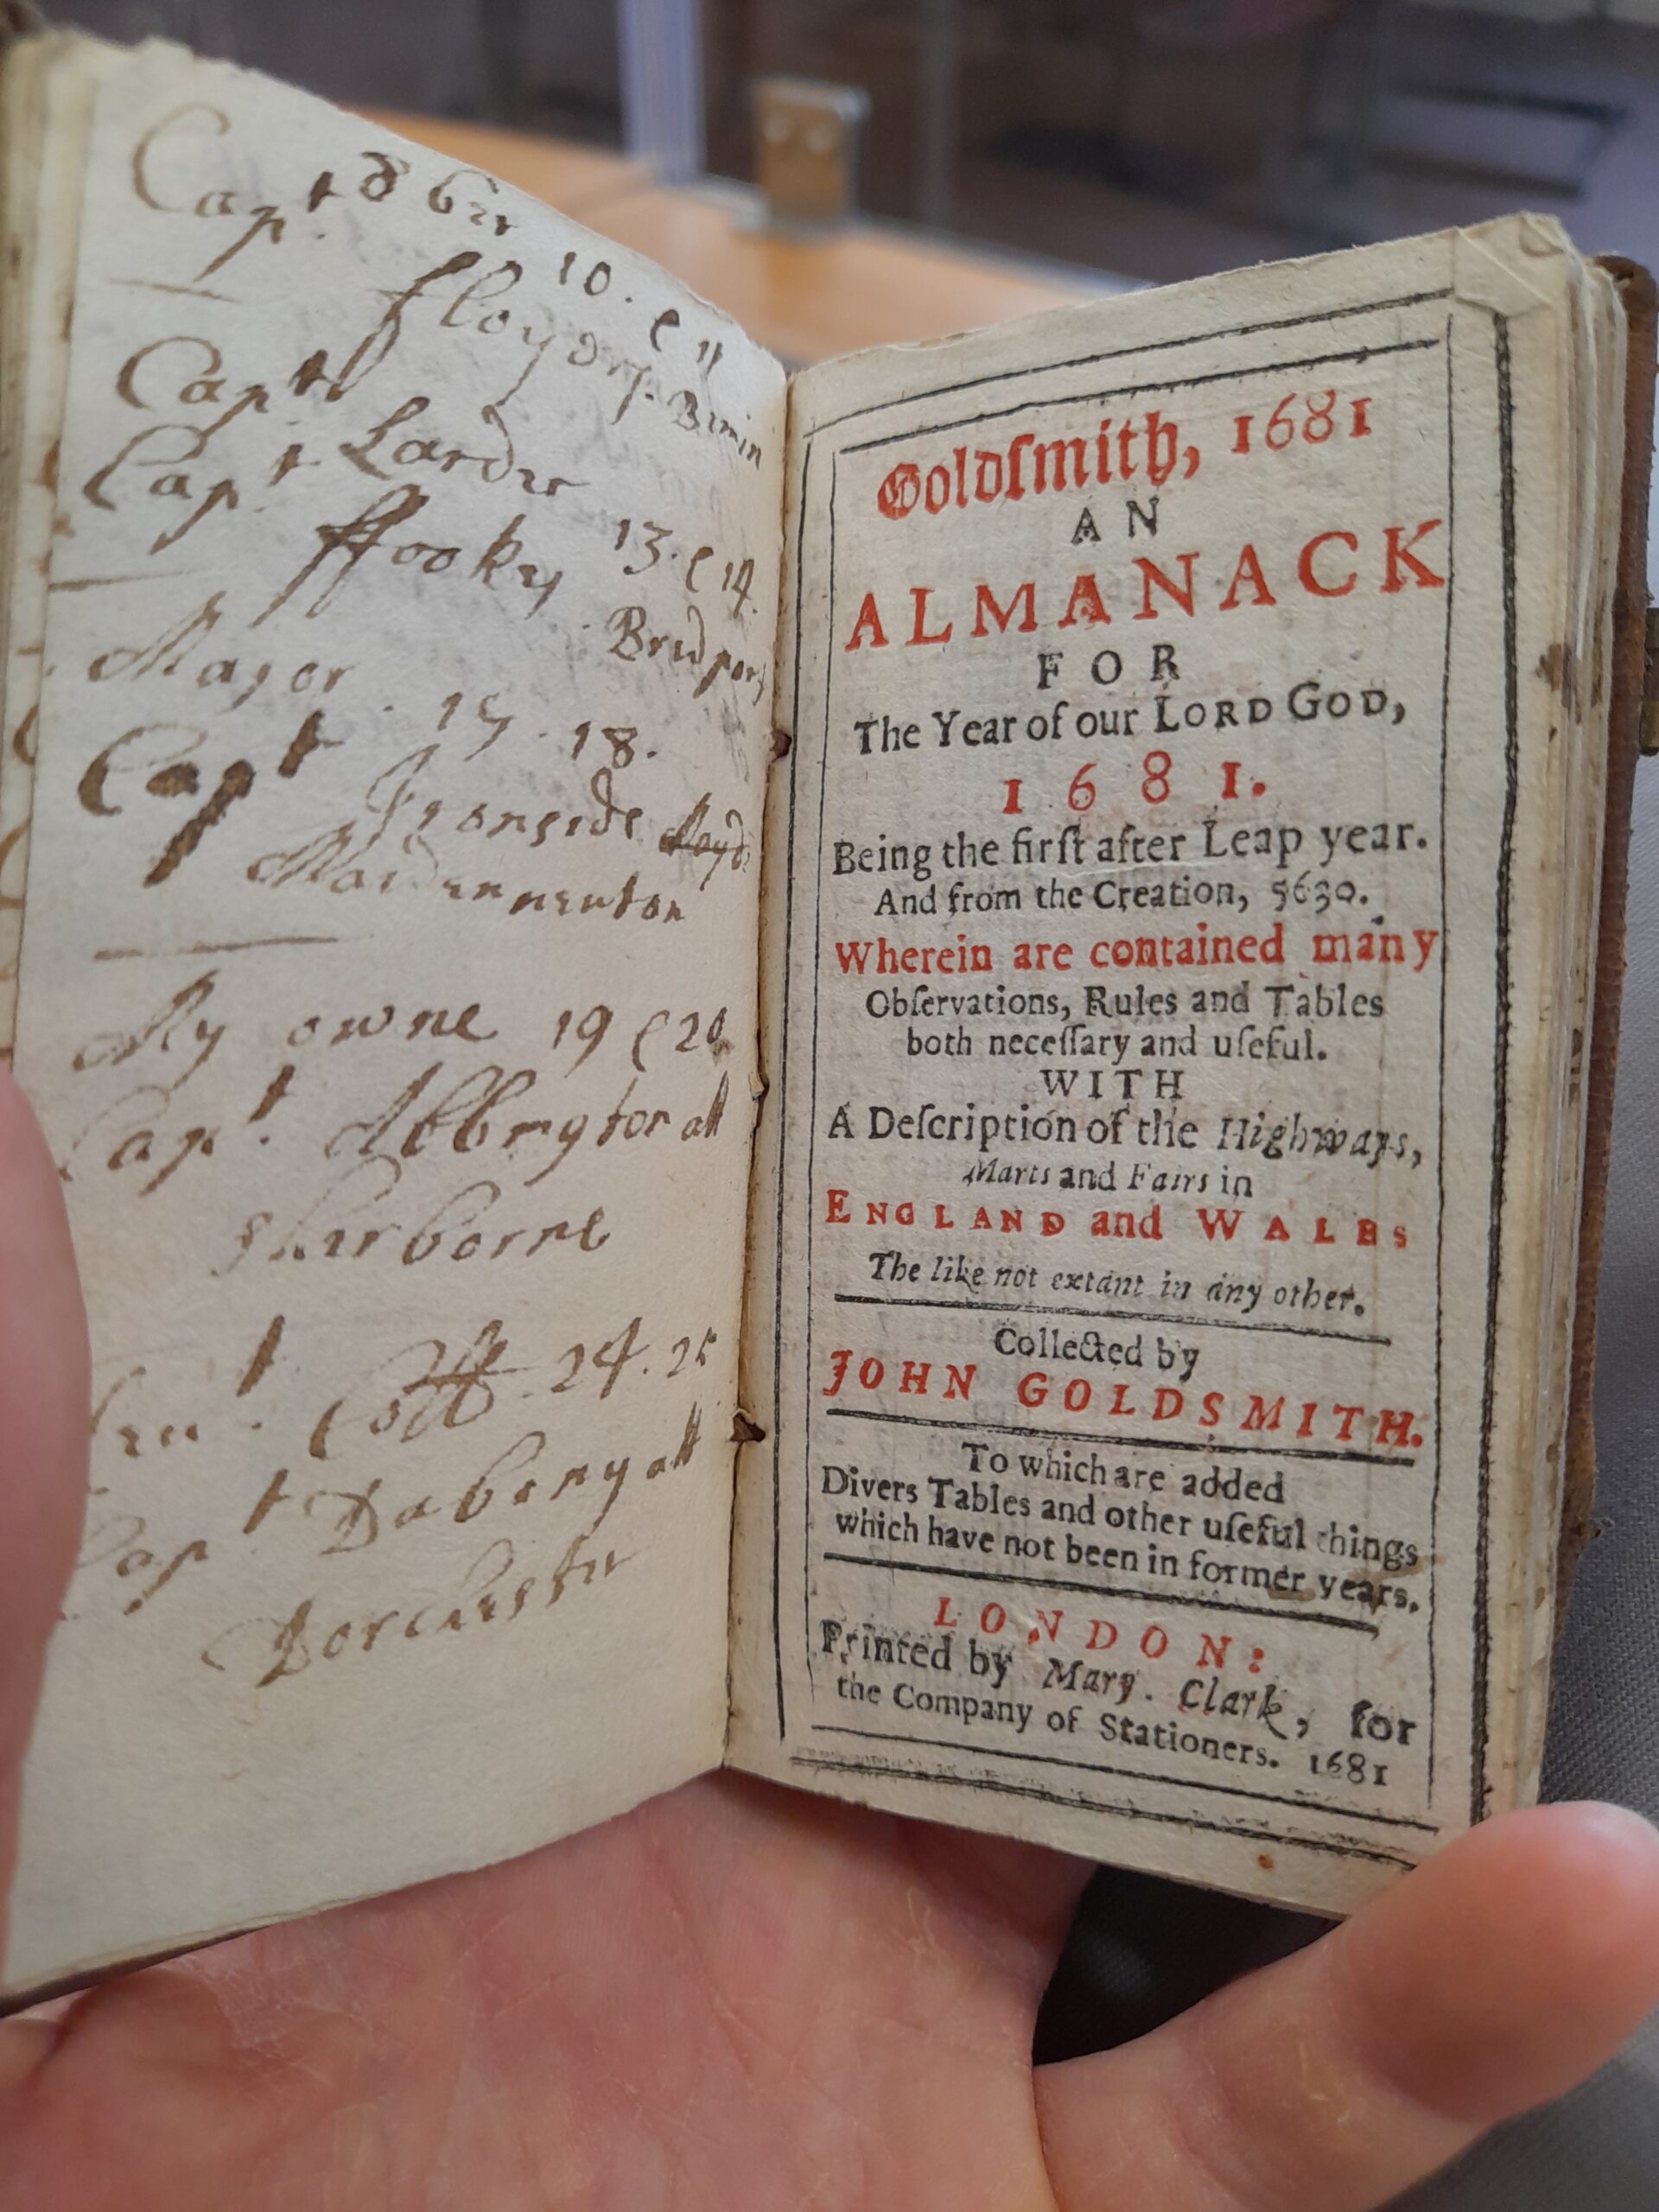 Capt
8br 10. & 11
ffloyd
Capt
Capt Larder
ffooky 13. & 14.
Bridport
Major
15. 18.
Capt
Ironside
Maiden newton
My owne 19 & 20
Capt. Abbington att
sherborne
24. 25
Capt Dabeny att
Dorchester
Goldſmith, 1681
AN
ALMANACK
FOR
The Year of our LORD GOD,
1681.
Being the firſt after Leap year.
And from the Creation, 5630.
Wherein are contained many
Obſervations, Rules and Tables
both neceſſary and uſeful.
WITH
A Deſcription of the Highways,
Marts and Fairs in
ENGLAND and WALES
The like not extant in any other.
Collected by
JOHN GOLDSMITH.
To which are added
Divers Tables and other uſeful things
which have not been in former years.
LONDON:
Printed by Mary. Clark, for
the Company of Stationers. 1681